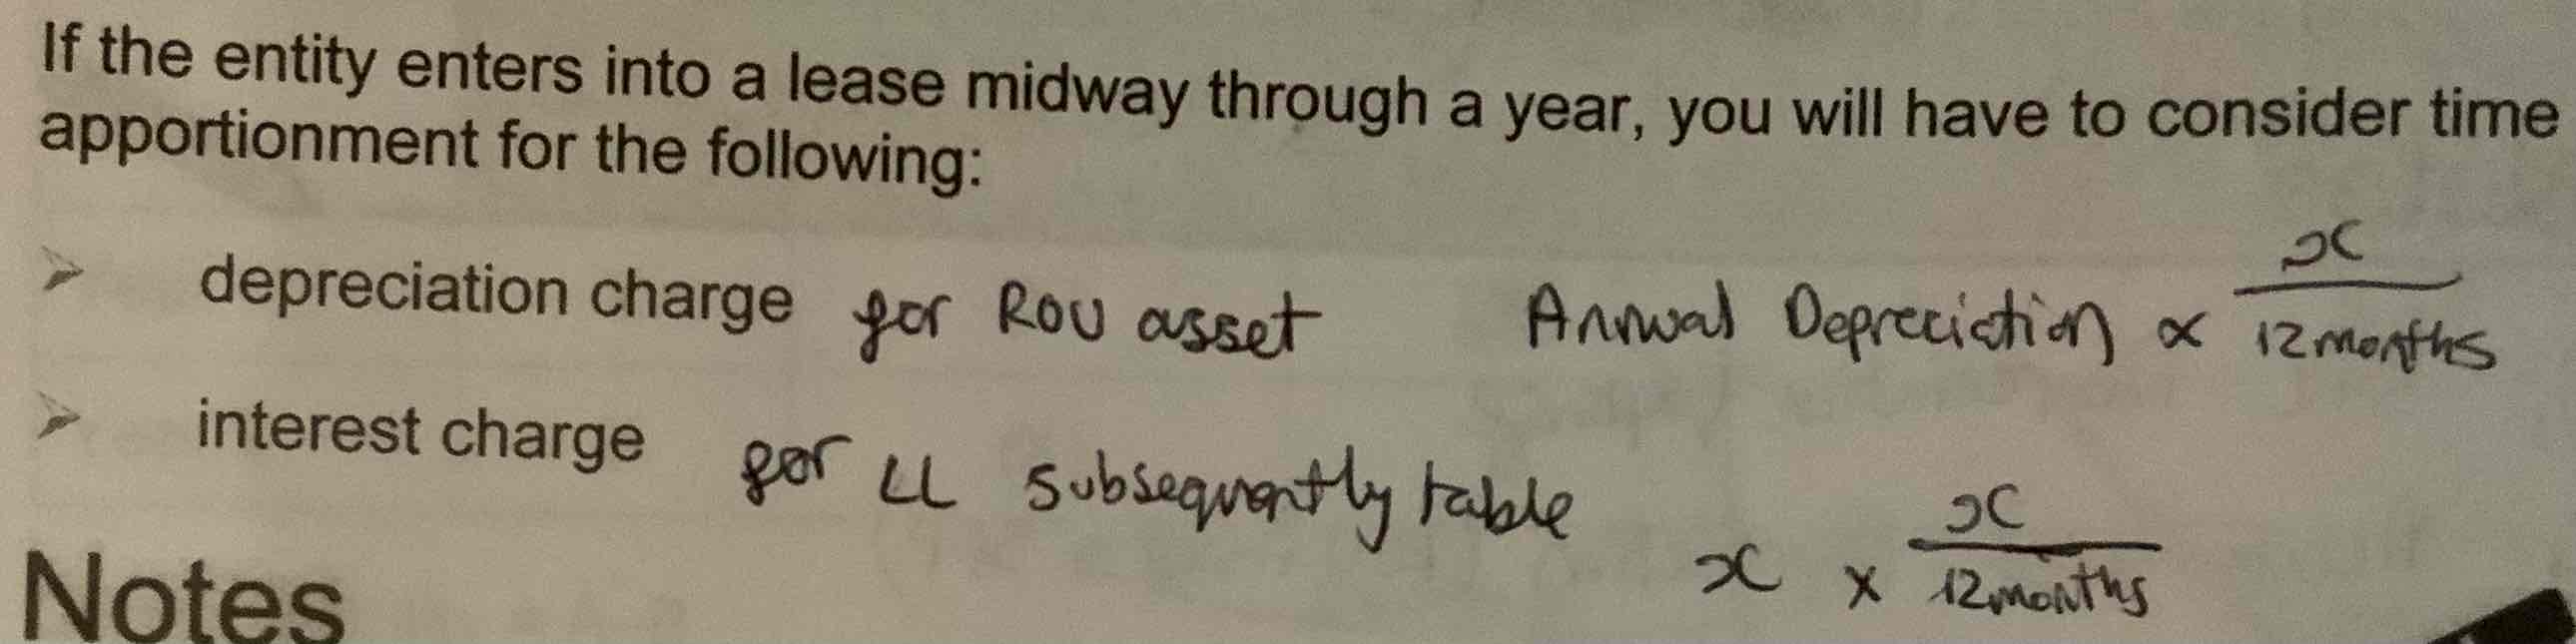 If the entity enters into a lease midway through a year, you will have to consider time
apportionment for the following:
➢ depreciation charge for ROU asset Annual Depreciation × x / 12 months
➢ interest charge for LL subsequently table x × x / 12 months
Notes